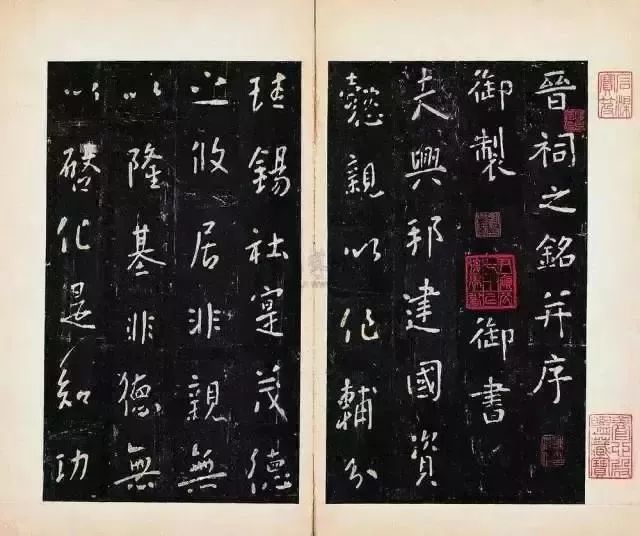 晉祠之銘并序
御製 御書
夫興邦建國資
懿親以作輔分
珪錫社寔茂德
之攸居非親無
以隆基非德無
以啓化是知功